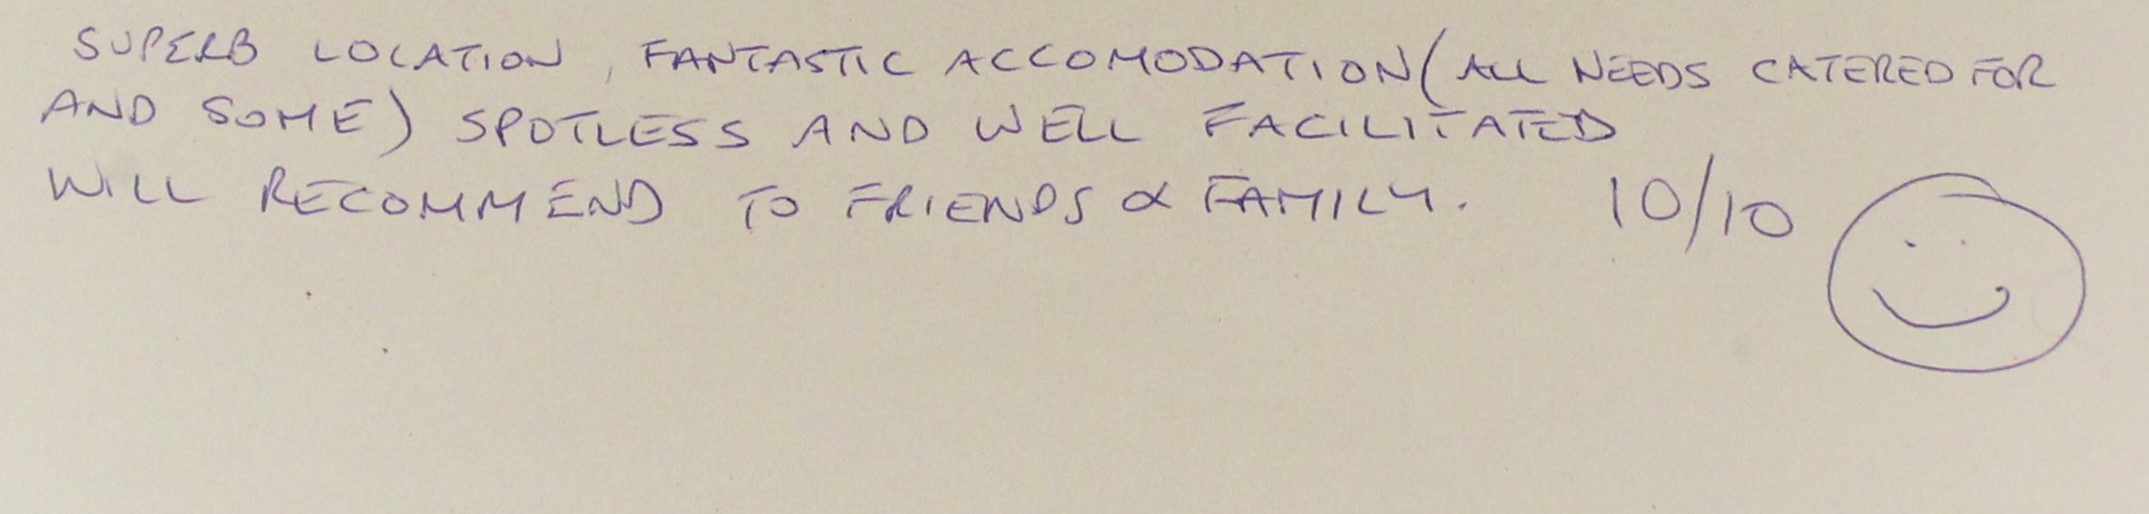 SUPERB LOCATION, FANTASTIC ACCOMODATION (ALL NEEDS CATERED FOR
AND SOME) SPOTLESS AND WELL FACILITATED
WILL RECOMMEND TO FRIENDS & FAMILY. 10/10